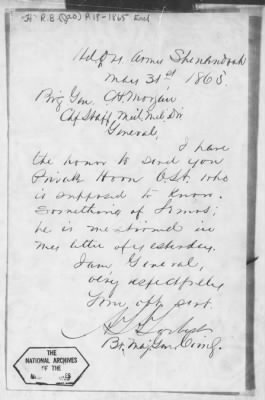 "H" R.B. (320) P.18-1865 Encl
Hd Qrs Army Shenandoah
May 31st 1865.
Brig Gen. C.H. Morgan
Chf Staff, Mid. Mil. Div
General,
I have
the honor to send you
Private Hoon Obt. who
is supposed to know
something of Simos;
he is mentioned in
my letter of yesterday.
I am General,
very respectfully
Your obt servt.
Bt. Maj. Gen. Comg.
THE
NATIONAL ARCHIVES
OF THE